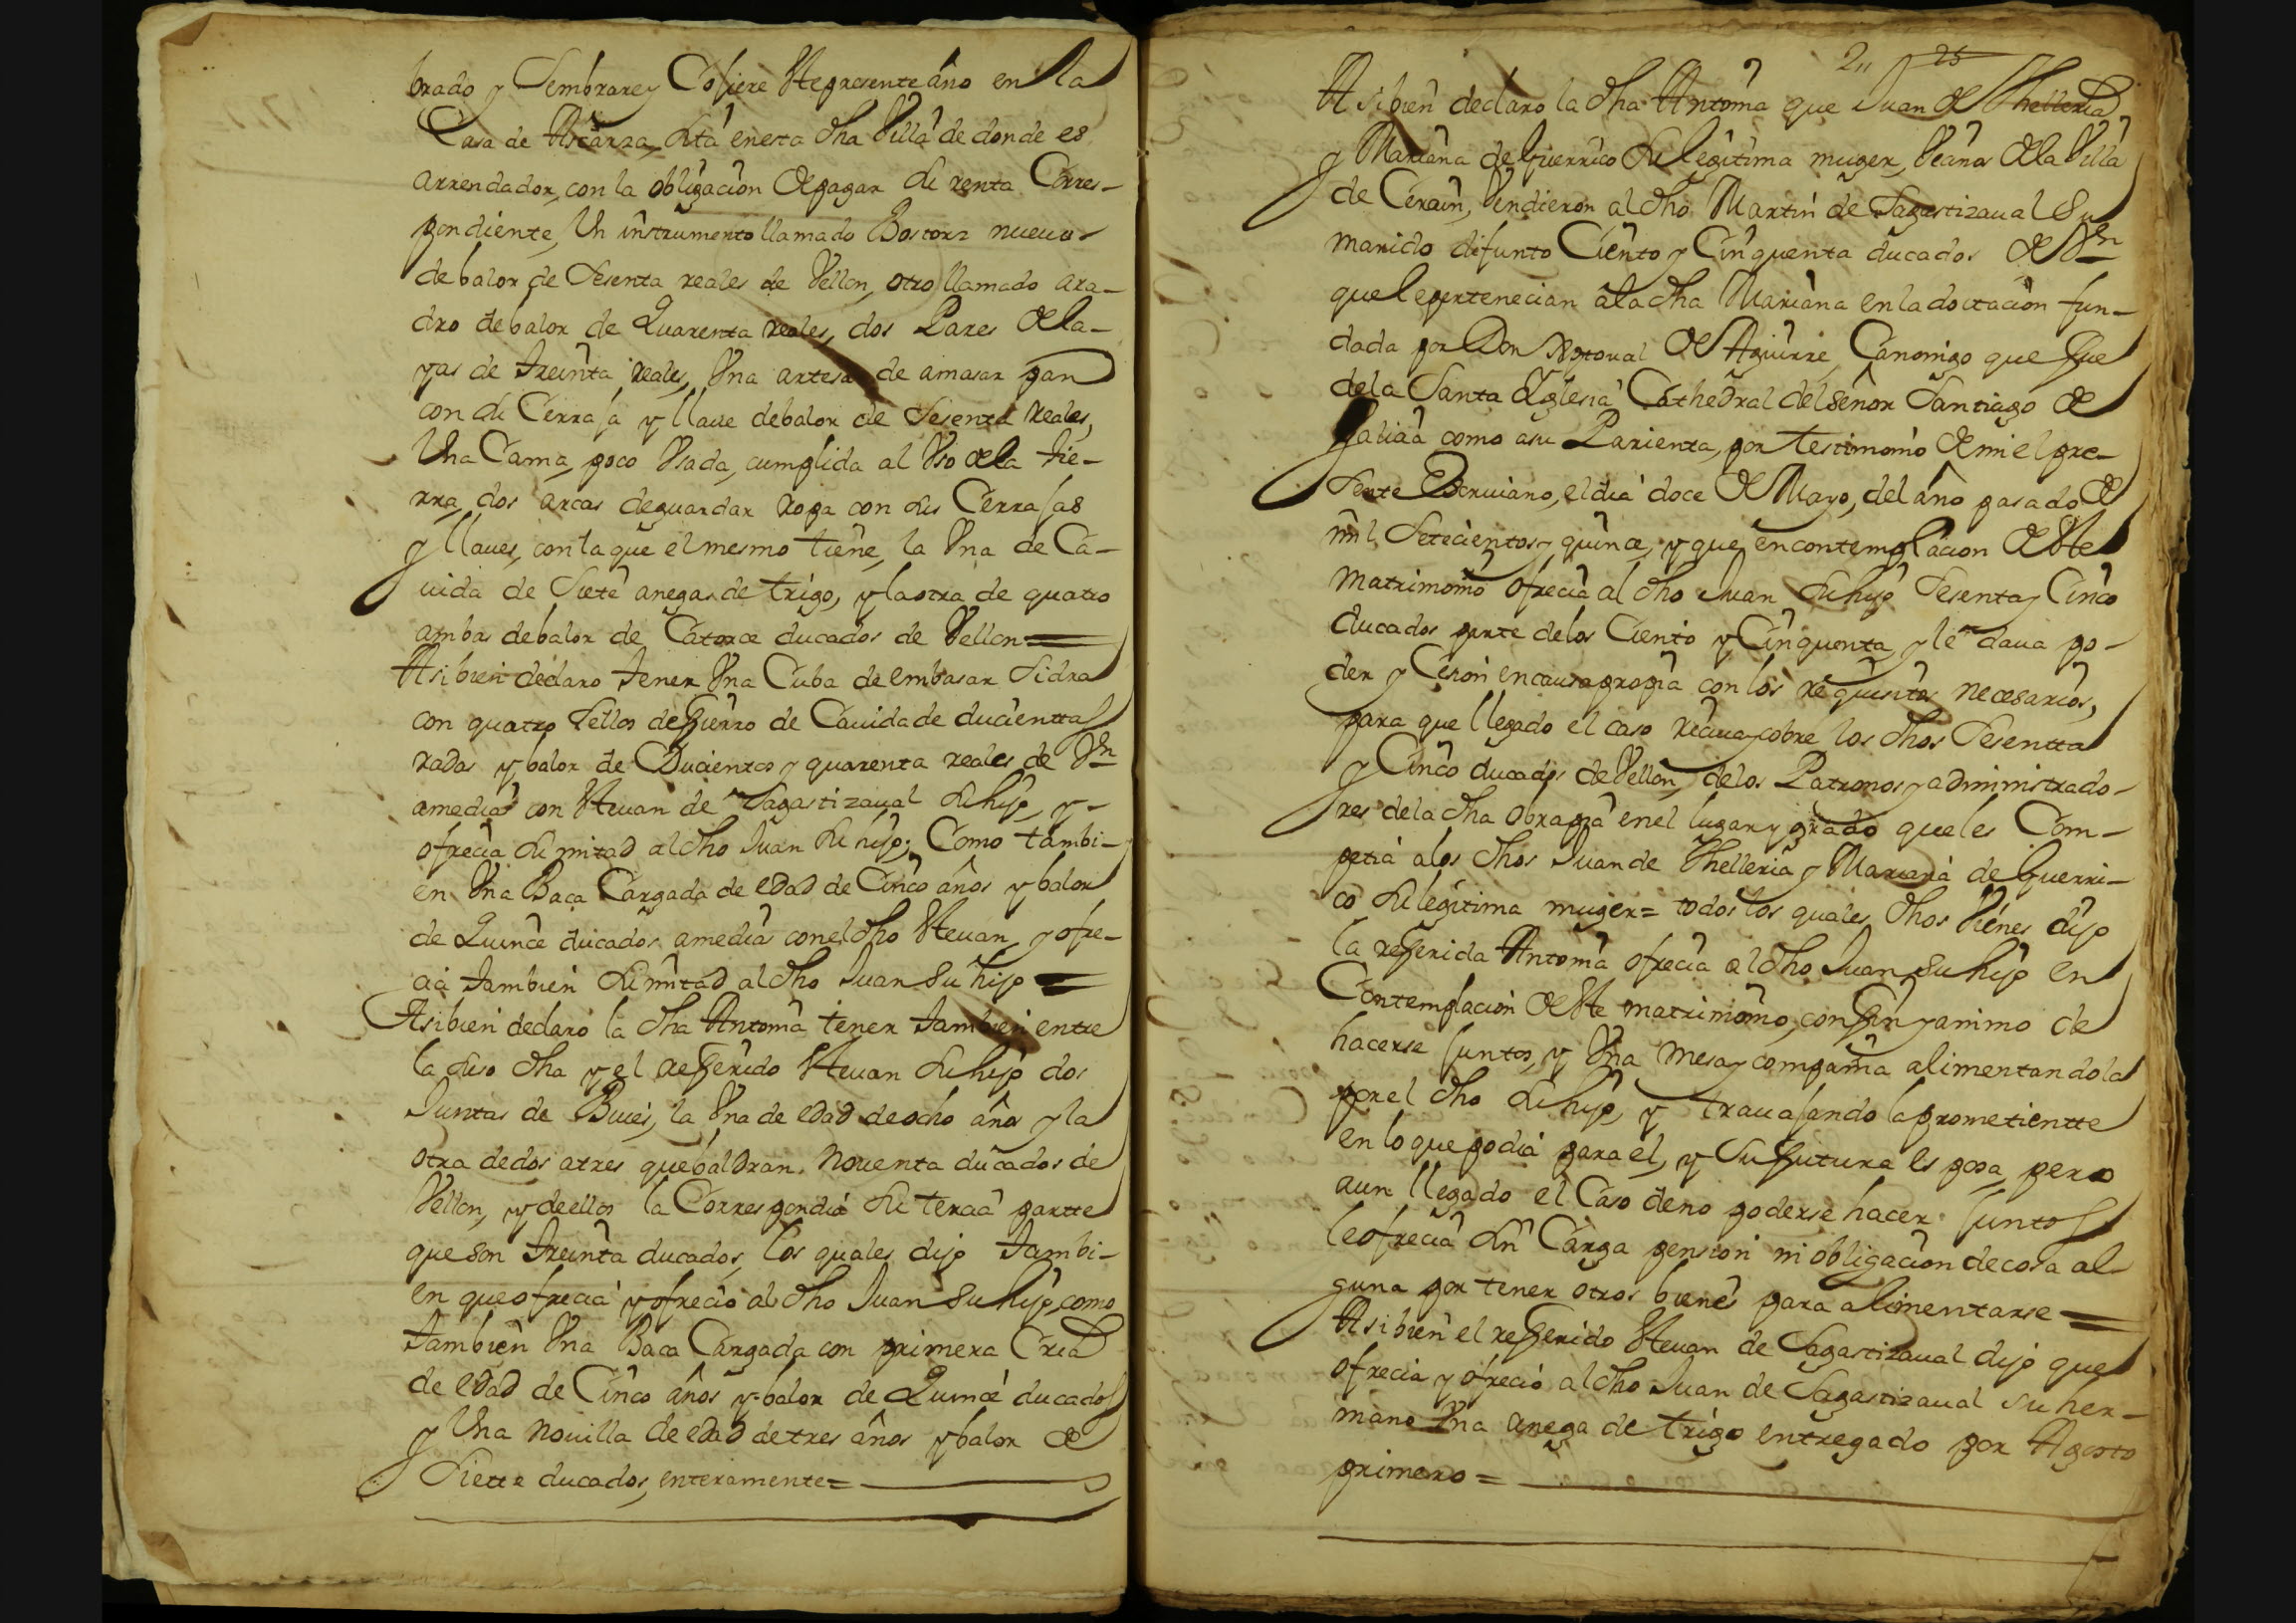 brado y Sembrare y Cojiere Este presente año en la
Casa de Ascarza, sita en esta dha Villa de donde es
arrendador, con la obligacion de pagar su renta Corres-
pondiente, Un instrumento llamado Bostorz nueuo
de balor de Sesenta reales de Vellon, otro llamado ara-
dro de balor de Quarenta reales, dos Pares de la-
yas de treinta reales, Una artesa de amasar pan
con su Cerraja y llaue de balor de Sesenta reales,
Una Cama, poco Vsada, cumplida al Vso de la tie-
rra, dos arcas de guardar ropa con sus Cerrajas
y llaues, con la que el mesmo tiene, la Vna de Ca-
uida de Siete anegas de trigo, y la otra de quatro
ambas de balor de Catorce ducados de Vellon=
Asibien declaro tener Vna Cuba de embasar Sidra
con quatro Sellos de fierro de Cauida de ducienttas
radas y balor de Ducientos y quarenta reales de Vn
amedias con Steuan de Sagastizaual su hijo, y-
ofrecia su mitad al dho Juan su hijo; Como tambi-
en Vna Baca Cargada de edad de Cinco años y balor
de Quince ducados amedias con el dho Steuan, y ofre-
cia tambien su mitad al dho Juan su hijo =
Asibien declaro la dha Antonia tener tambien entre
la suso dha y el referido Steuan su hijo dos
Juntas de Bues, la Vna de edad de ocho años y la
otra de dos a tres que baldran Nouenta ducados de
Vellon, y de ellos la Correspondia su tercia partte
que son treinta ducados, los quales dijo tambi-
en que ofrecia y ofrecio al dho Juan su hijo, como
tambien Vna Baca Cargada con primera Cria
de edad de Cinco años y balor de Quince ducados
y Una nouilla de edad de tres años y balor de
Siette ducados, enteramente=
2„ 25
Asibien declaro la dha Antonia que Juan de Thelleria
y Mariana de Guerrico su legitima muger, Veanos de la Villa
de Cerain, Vendieron al dho Martin de Sagastizaual Su
marido difunto Ciento y Cinquenta ducados de Vn
que le pertenecian a la dha Mariana en la doctacion fun-
dada por Don Xptoual de Aguirre, Canonigo que fue
de la Santa Yglesia Cathedral del Señor Santiago de
Galicia como a su Parienta, por testimonio de mi el pre-
sente Escriuano, el dia doce de Mayo, del año pasado de
mil Setecientos y quince, y que en contemplacion de Este
matrimonio ofrecia al dho Juan su hijo Sesenta y Cinco
ducados parte de los Ciento y Cinquenta y le daua po-
der y Cesion en causa propia con los requisitos necesarios,
para que llegado el caso reciua y cobre los dhos Sesentta
y Cinco ducados de Vellon, de los Patronos y administrado-
res de la dha obra pia en el lugar y grado que les Com-
petia a los dhos Juan de Thelleria y Mariana de Guerri-
co su legitima muger= todos los quales dhos Vienes dijo
la referida Antonia ofrecia al dho Juan su hijo en
Contemplacion de Este matrimonio, con fin y animo de
hacerse juntos, y Vna mesa y compania alimentandola
por el dho su hijo, y trauajando la prometientte
en lo que podia para el, y su futura esposa, pero
aun llegado el Caso de no poderse hacer juntos
le ofrecia sin Carga pension ni obligacion de cosa al-
guna por tener otros bienes para alimentarse =
Asibien el referido Steuan de Sagastizaual dijo que
ofrecia y ofrecio al dho Juan de Sagastizaual su her-
mano Vna anega de trigo entregado por Agosto
primero=